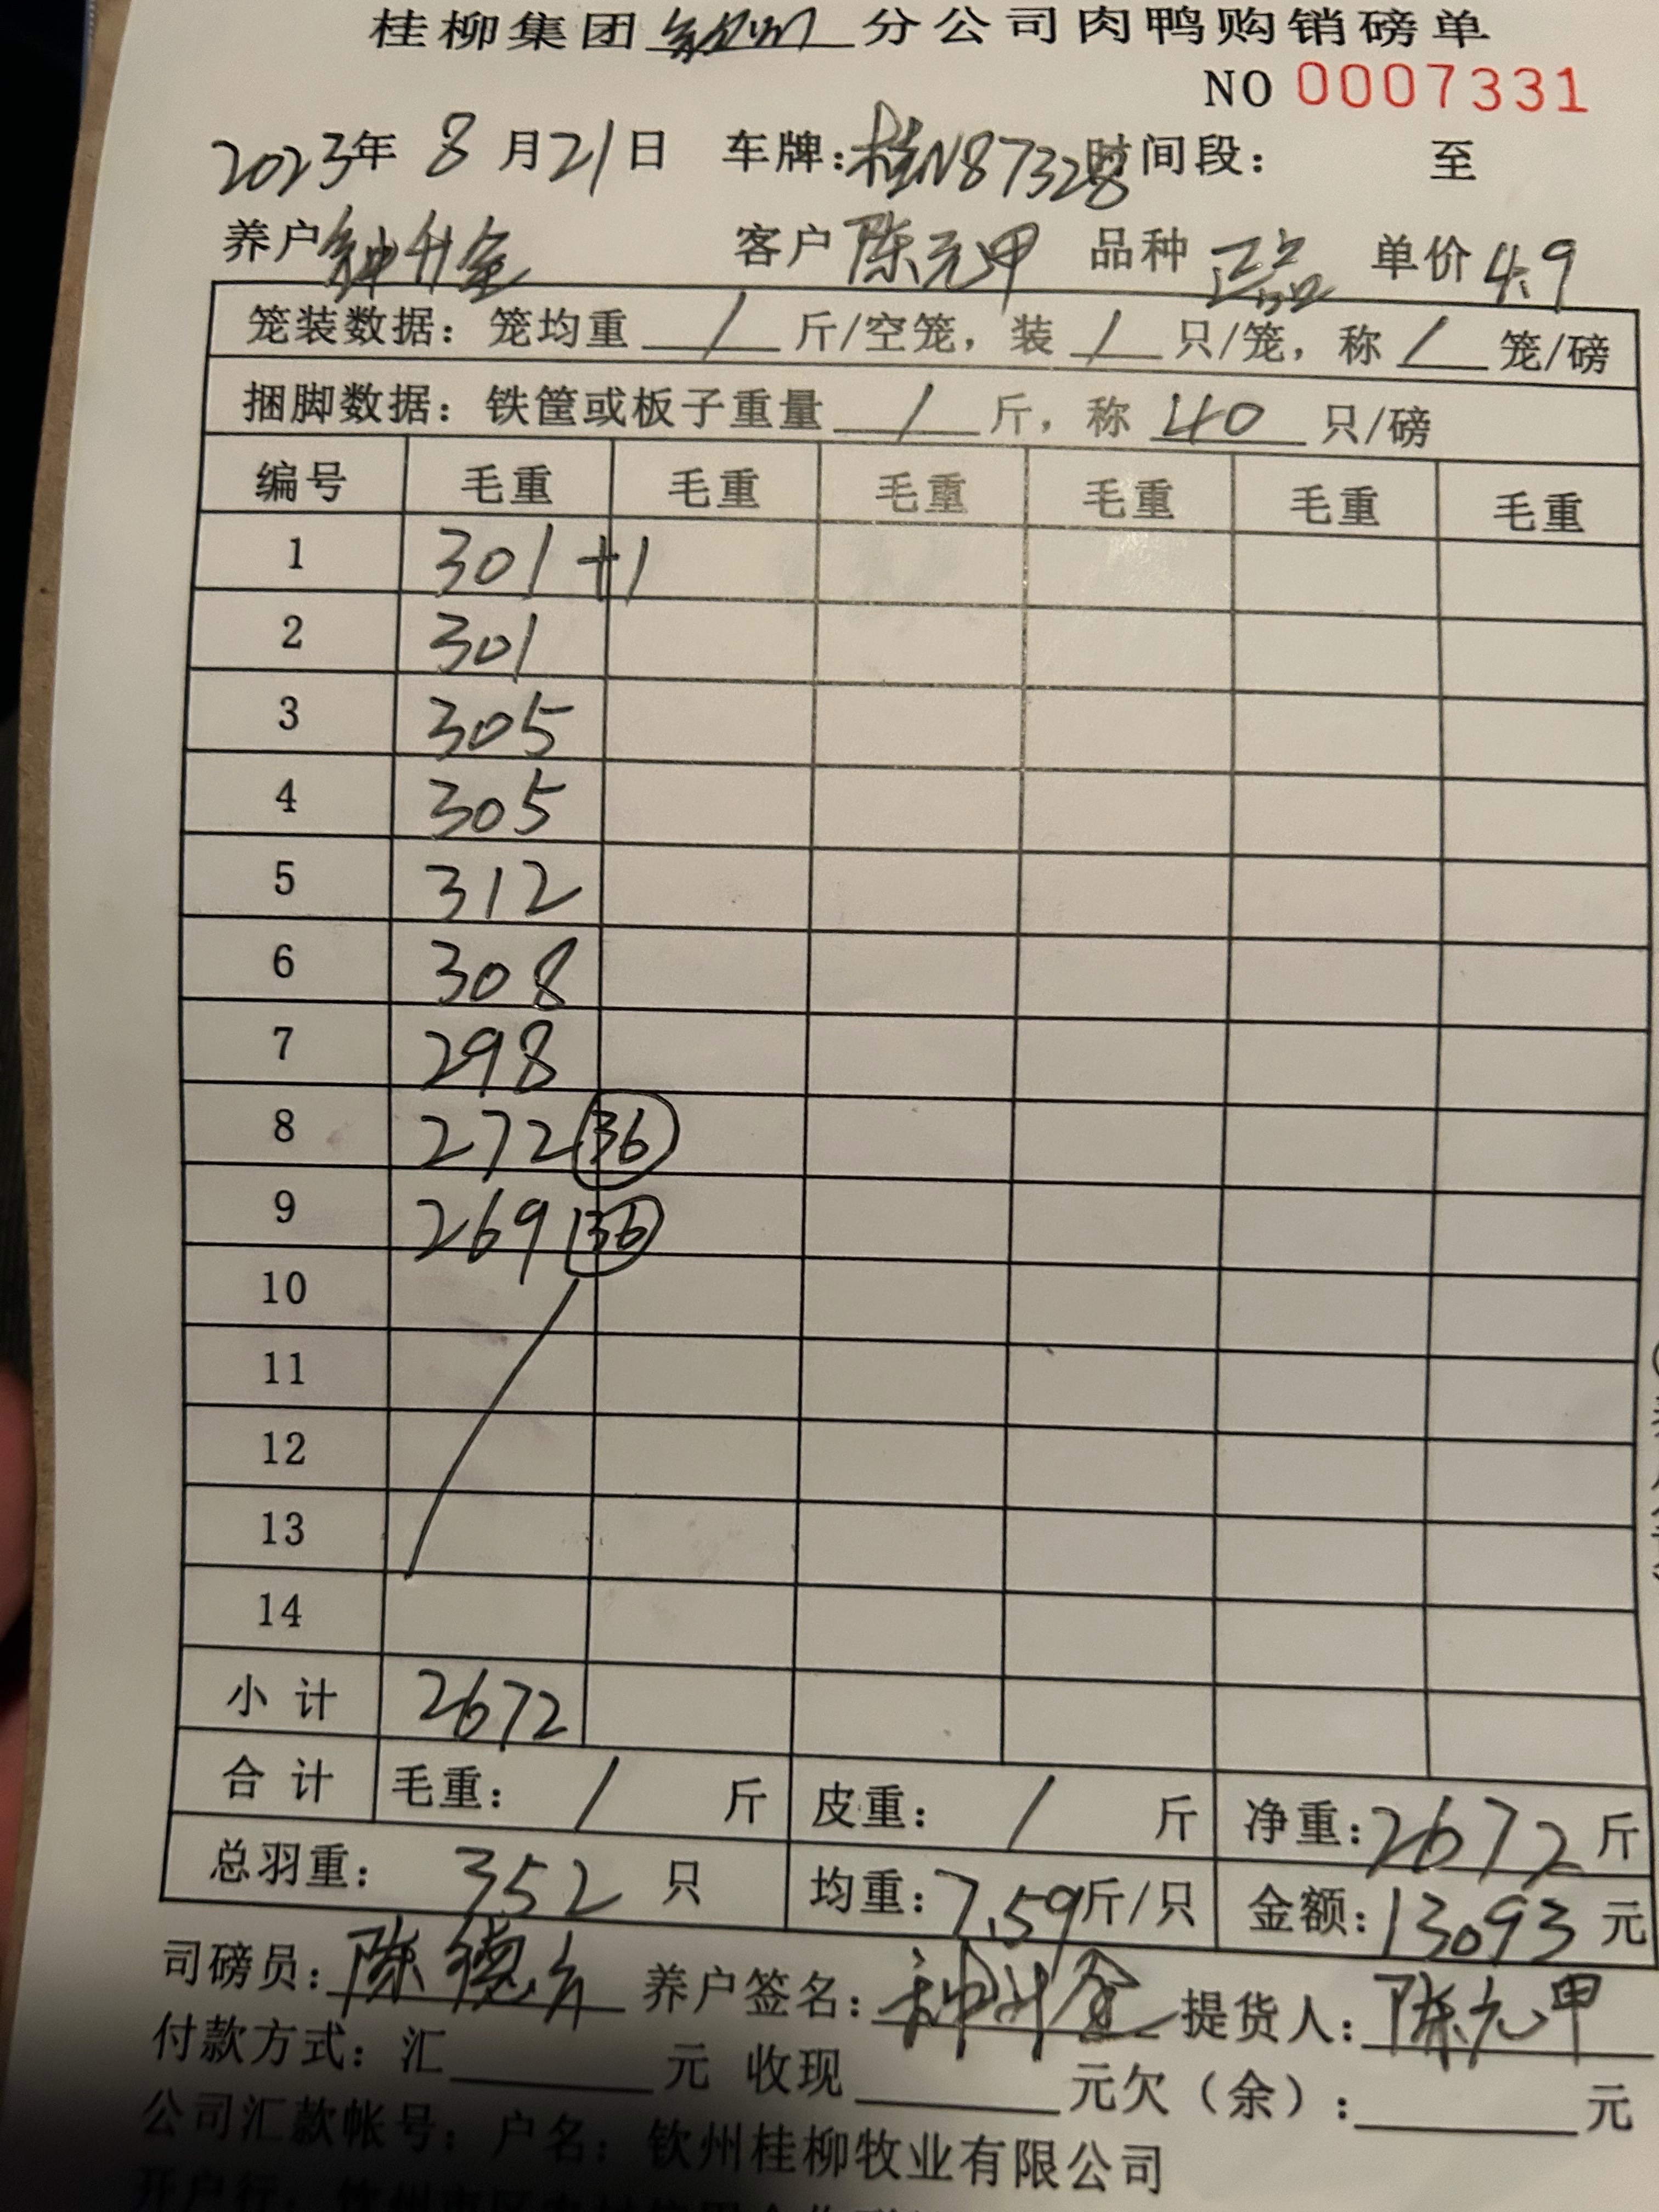 桂柳集团钦州分公司肉鸭购销磅单
NO 0007331
2023年 8月21日 车牌:桂N87328 时间段: 至
养户 钟升金 客户 陈元甲 品种 正品 单价 4.9
笼装数据: 笼均重 / 斤/空笼, 装 / 只/笼, 称 / 笼/磅
捆脚数据: 铁筐或板子重量 / 斤, 称 40 只/磅
编号 毛重 毛重 毛重 毛重 毛重 毛重
1 301+1
2 301
3 305
4 305
5 312
6 308
7 298
8 272 36
9 269 36
10
11
12
13
14
小计 2672
合计 毛重: / 斤 皮重: / 斤 净重: 2672 斤
总羽重: 352 只 均重: 7.59 斤/只 金额: 13093 元
司磅员: 陈德 养户签名: 钟升金 提货人: 陈元甲
付款方式: 汇 元 收现 元欠(余): 元
公司汇款帐号: 户名: 钦州桂柳牧业有限公司
开户行: